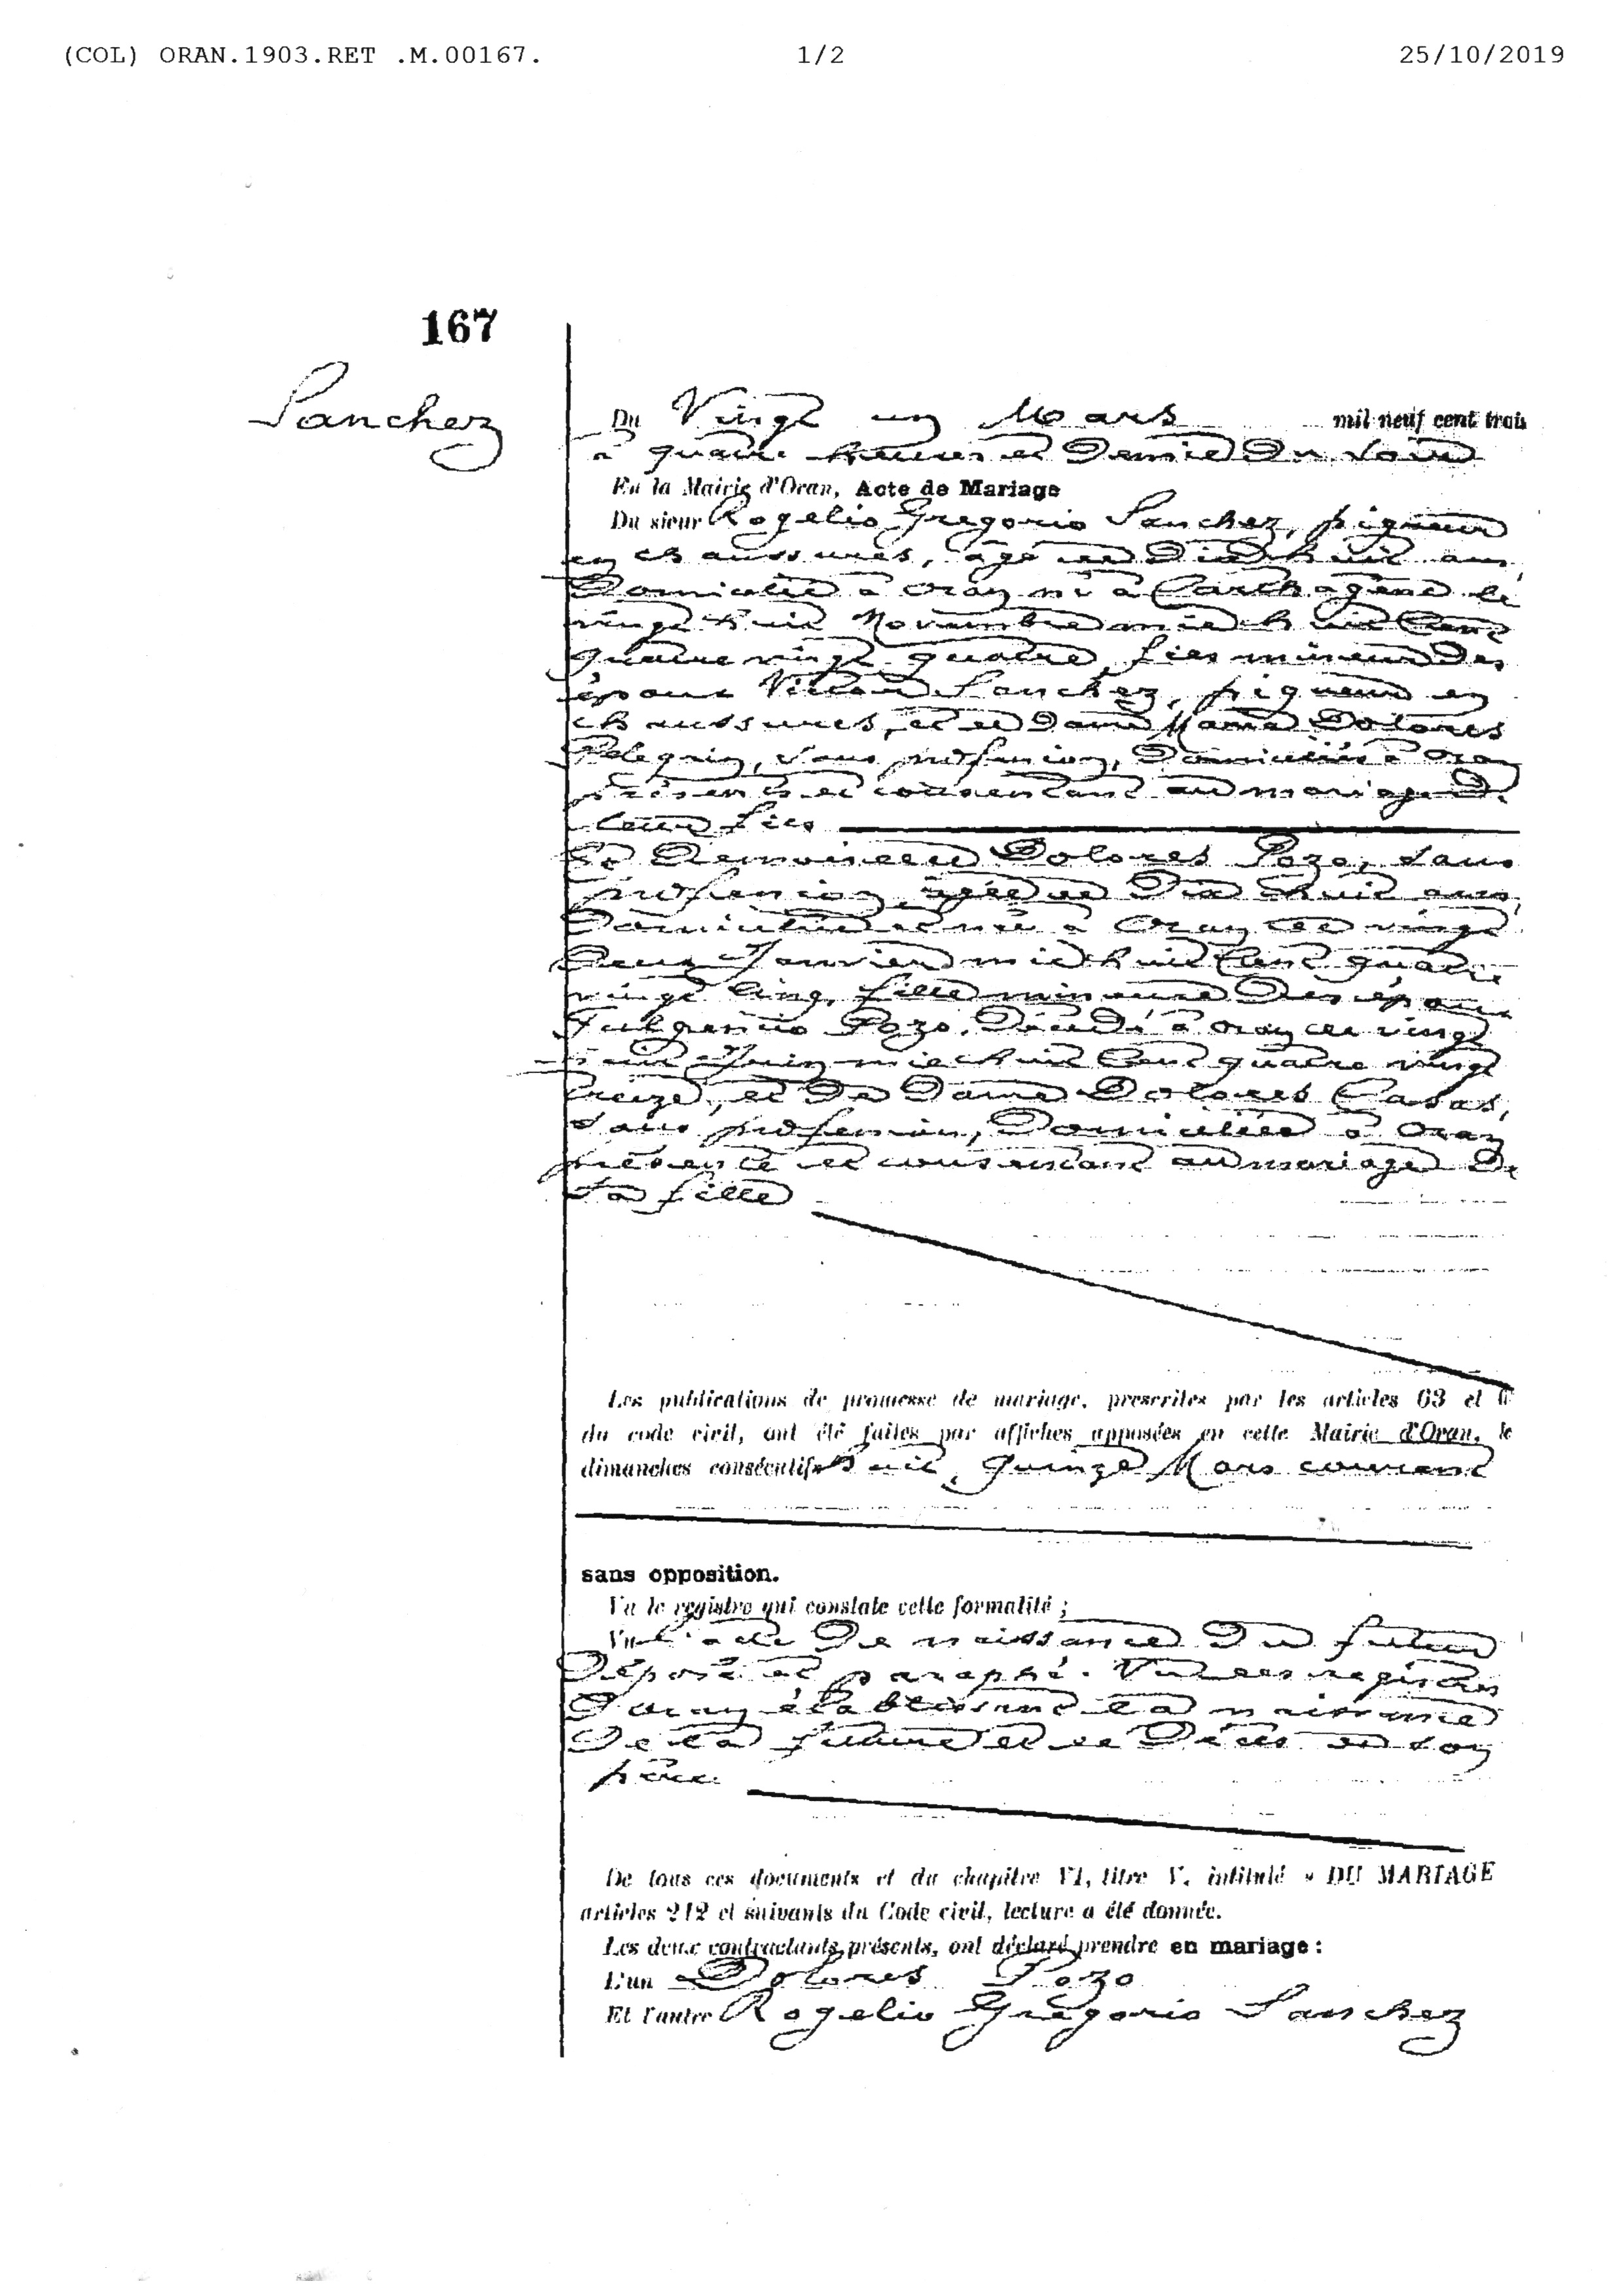 (COL) ORAN.1903.RET .M.00167. 1/2 25/10/2019
167
Sanchez
Du Vingt un Mars mil neuf cent trois
à quatre heures et Demie Du Soir
En la Mairie d'Oran, Acte de Mariage
Du sieur Rogelio Gregorio Sanchez, piqueur
en chaussures, âgé de Dix huit ans,
Domicilié à Oran né à Carthagène le
vingt huit Novembre mil huit Cent
quatre vingt quatre, fils mineur Des
époux Sanchez, piqueur en
chaussures, et de Dame Maria Dolores
Pelegrin, sans profession, Domiciliés à Oran
présents et consentant au mariage De
leur fils
Et Demoiselle Dolores Pozo, sans
profession, âgée de Dix huit ans,
Domiciliée et née à Oran le vingt
Deux Janvier mil huit Cent quatre
vingt Cinq, fille mineure Des époux
Fulgencio Pozo, Décédé à Oran le vingt
Juin mil huit Cent quatre vingt
treize, et De Dame Dolores Casas,
sans profession, Domiciliée à Oran
présente et consentant au mariage De
Sa fille
Les publications de promesse de mariage, prescrites par les articles 63 et
du code civil, ont été faites par affiches apposées en cette Mairie d'Oran, le
dimanches consécutifs huit, quinze Mars courant
sans opposition.
Vu le registre qui constate cette formalité ;
Vu l'acte De naissance Du futur
Déposé et paraphé. Vu les registres
D'oran établissant la naissance
De la future et le Décès de son
père.
De tous ces documents et du chapitre VI, titre V, intitulé « DU MARIAGE
articles 212 et suivants du Code civil, lecture a été donnée.
Les deux contractants présents, ont déclaré prendre en mariage :
L'un Dolores Pozo
Et l'autre Rogelio Grégorio Sanchez